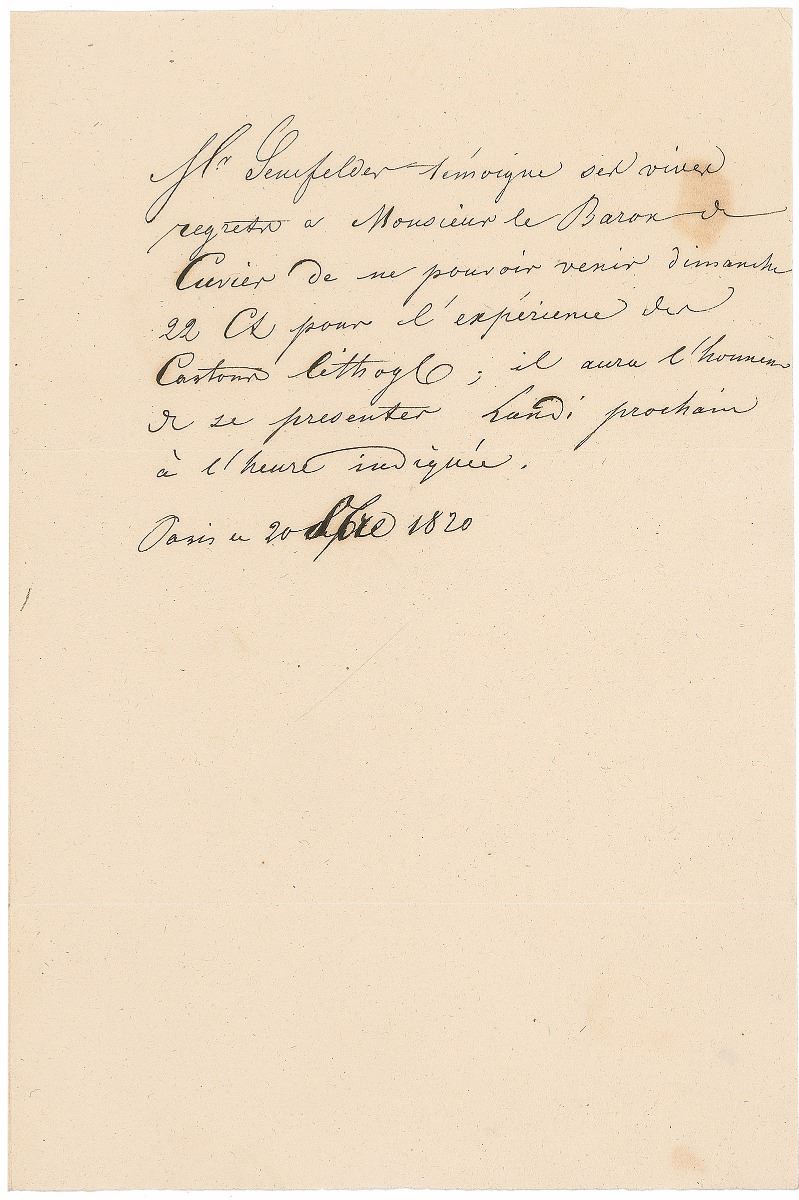 Mr Senefelder témoigne ses vives
regrets a Monsieur le Baron de
Cuvier de ne pouvoir venir dimanche
22 Ct pour l'expérience des
Cartons lithogr ; il aura l'honneur
de se presenter Lundi prochain
à l'heure indiquée.
Paris ce 20 1820